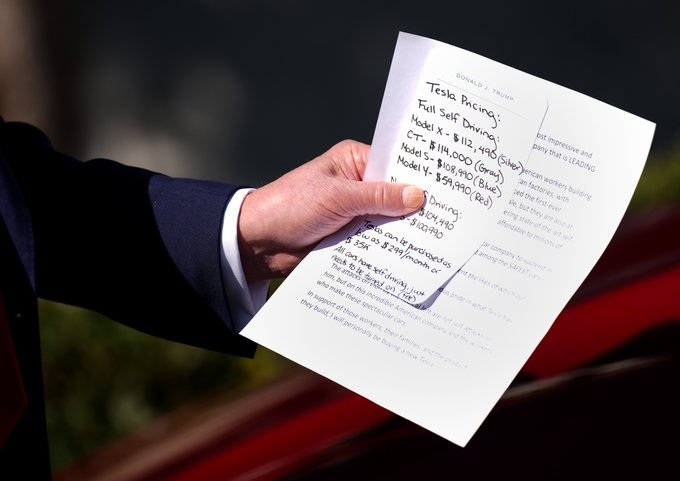 DONALD J. TRUMP
Tesla Pricing:
Full Self Driving:
Model X - $112,490 (Silver)
CT - $114,000 (Gray)
Model S - $108,990 (Blue)
Model Y - $59,990 (Red)
Driving:
$104,490
S - $100,990
Teslas can be purchased as
low as $299/month or
$35K
All cars have self driving, just
needs to be turned on (fee)
ost impressive and
pany that is LEADING
merican workers building
an factories, with
ced the first-ever
le, but they are also at
ering state-of-the-art self
affordable to millions of
al company to succeed in
among the SAFEST cars
ent the likes of which our
pride in what Tesla has
The attacks on
are not just attacks on
him, but on this incredible American company and the workers
who make these spectacular cars.
In support of those workers, their families, and the product
they build, I will personally be buying a new Tesla